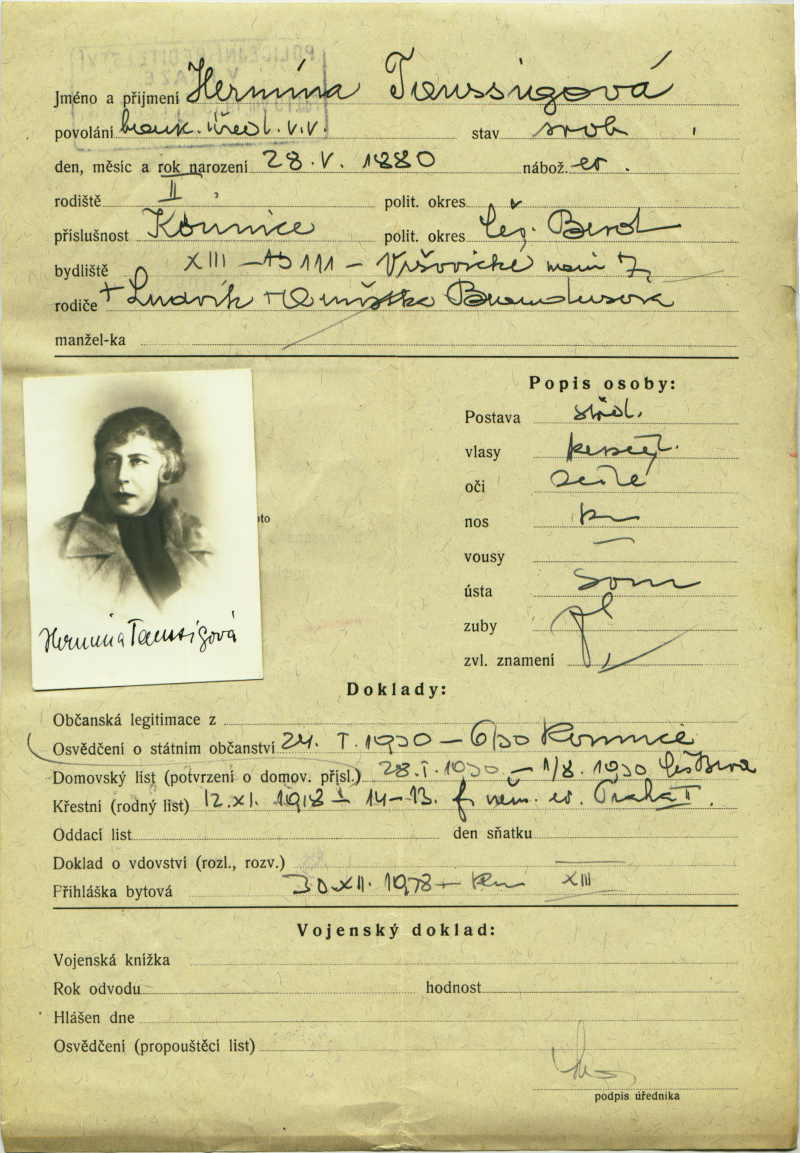 POLICEJNÍ ŘEDITELSTVÍ
V PRAZE
Jméno a příjmení Hermína Taussigová
povolání bank. úředl. v.v. stav svob
den, měsíc a rok narození 28.V. 1880 nábož. ev.
rodiště II polit. okres
příslušnost Kounice polit. okres Čes. Brod
bydliště XIII - 111 - Vršovické nám 7
rodiče + Ludvík + Brandusova
manžel-ka
Popis osoby:
Postava střed.
vlasy
oči šedé
nos
vousy —
ústa soum
zuby pl
zvl. znamení
oto
Hermína Taussigová
Doklady:
Občanská legitimace z
Osvědčení o státním občanství 24. I. 1930 - 6/30 Kounice
Domovský list (potvrzení o domov. přísl.) 28.I. 1930 - 1/8. 1930 Čes Brod
Křestní (rodný list) 12.XI. 1918 14-13. f. něm. ev. Praha II.
Oddací list den sňatku
Doklad o vdovství (rozl., rozv.) —
Přihláška bytová 30.XII. 1938 XIII
Vojenský doklad:
Vojenská knížka
Rok odvodu hodnost
Hlášen dne
Osvědčení (propouštěcí list)
podpis úředníka